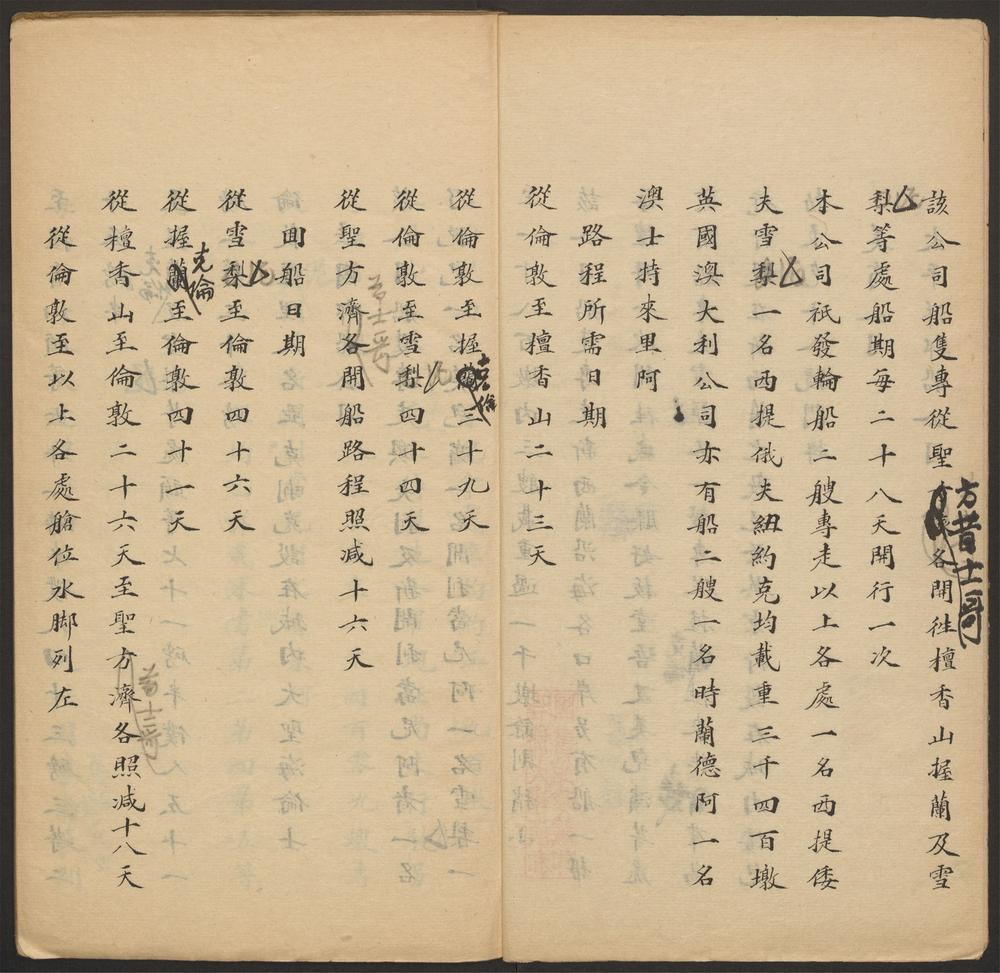 該公司船隻專從聖方昔士哥各開往檀香山握蘭及雪
梨等處船期每二十八天開行一次
本公司祇發輪船二艘專走以上各處一名西提倭
夫雪梨一名西提俄夫紐約克均載重三千四百墩
英國澳大利公司亦有船二艘一名時蘭德阿一名
澳士特來里阿
路程所需日期
從倫敦至檀香山二十三天
從倫敦至握克倫三十九天
從倫敦至雪梨四十四天
從聖方濟各開船路程照减十六天
昔士哥
回船日期
從雪梨至倫敦四十六天
從握克倫至倫敦四十一天
從檀香山至倫敦二十六天至聖方濟各照减十八天
昔士哥
從倫敦至以上各處艙位水脚列左